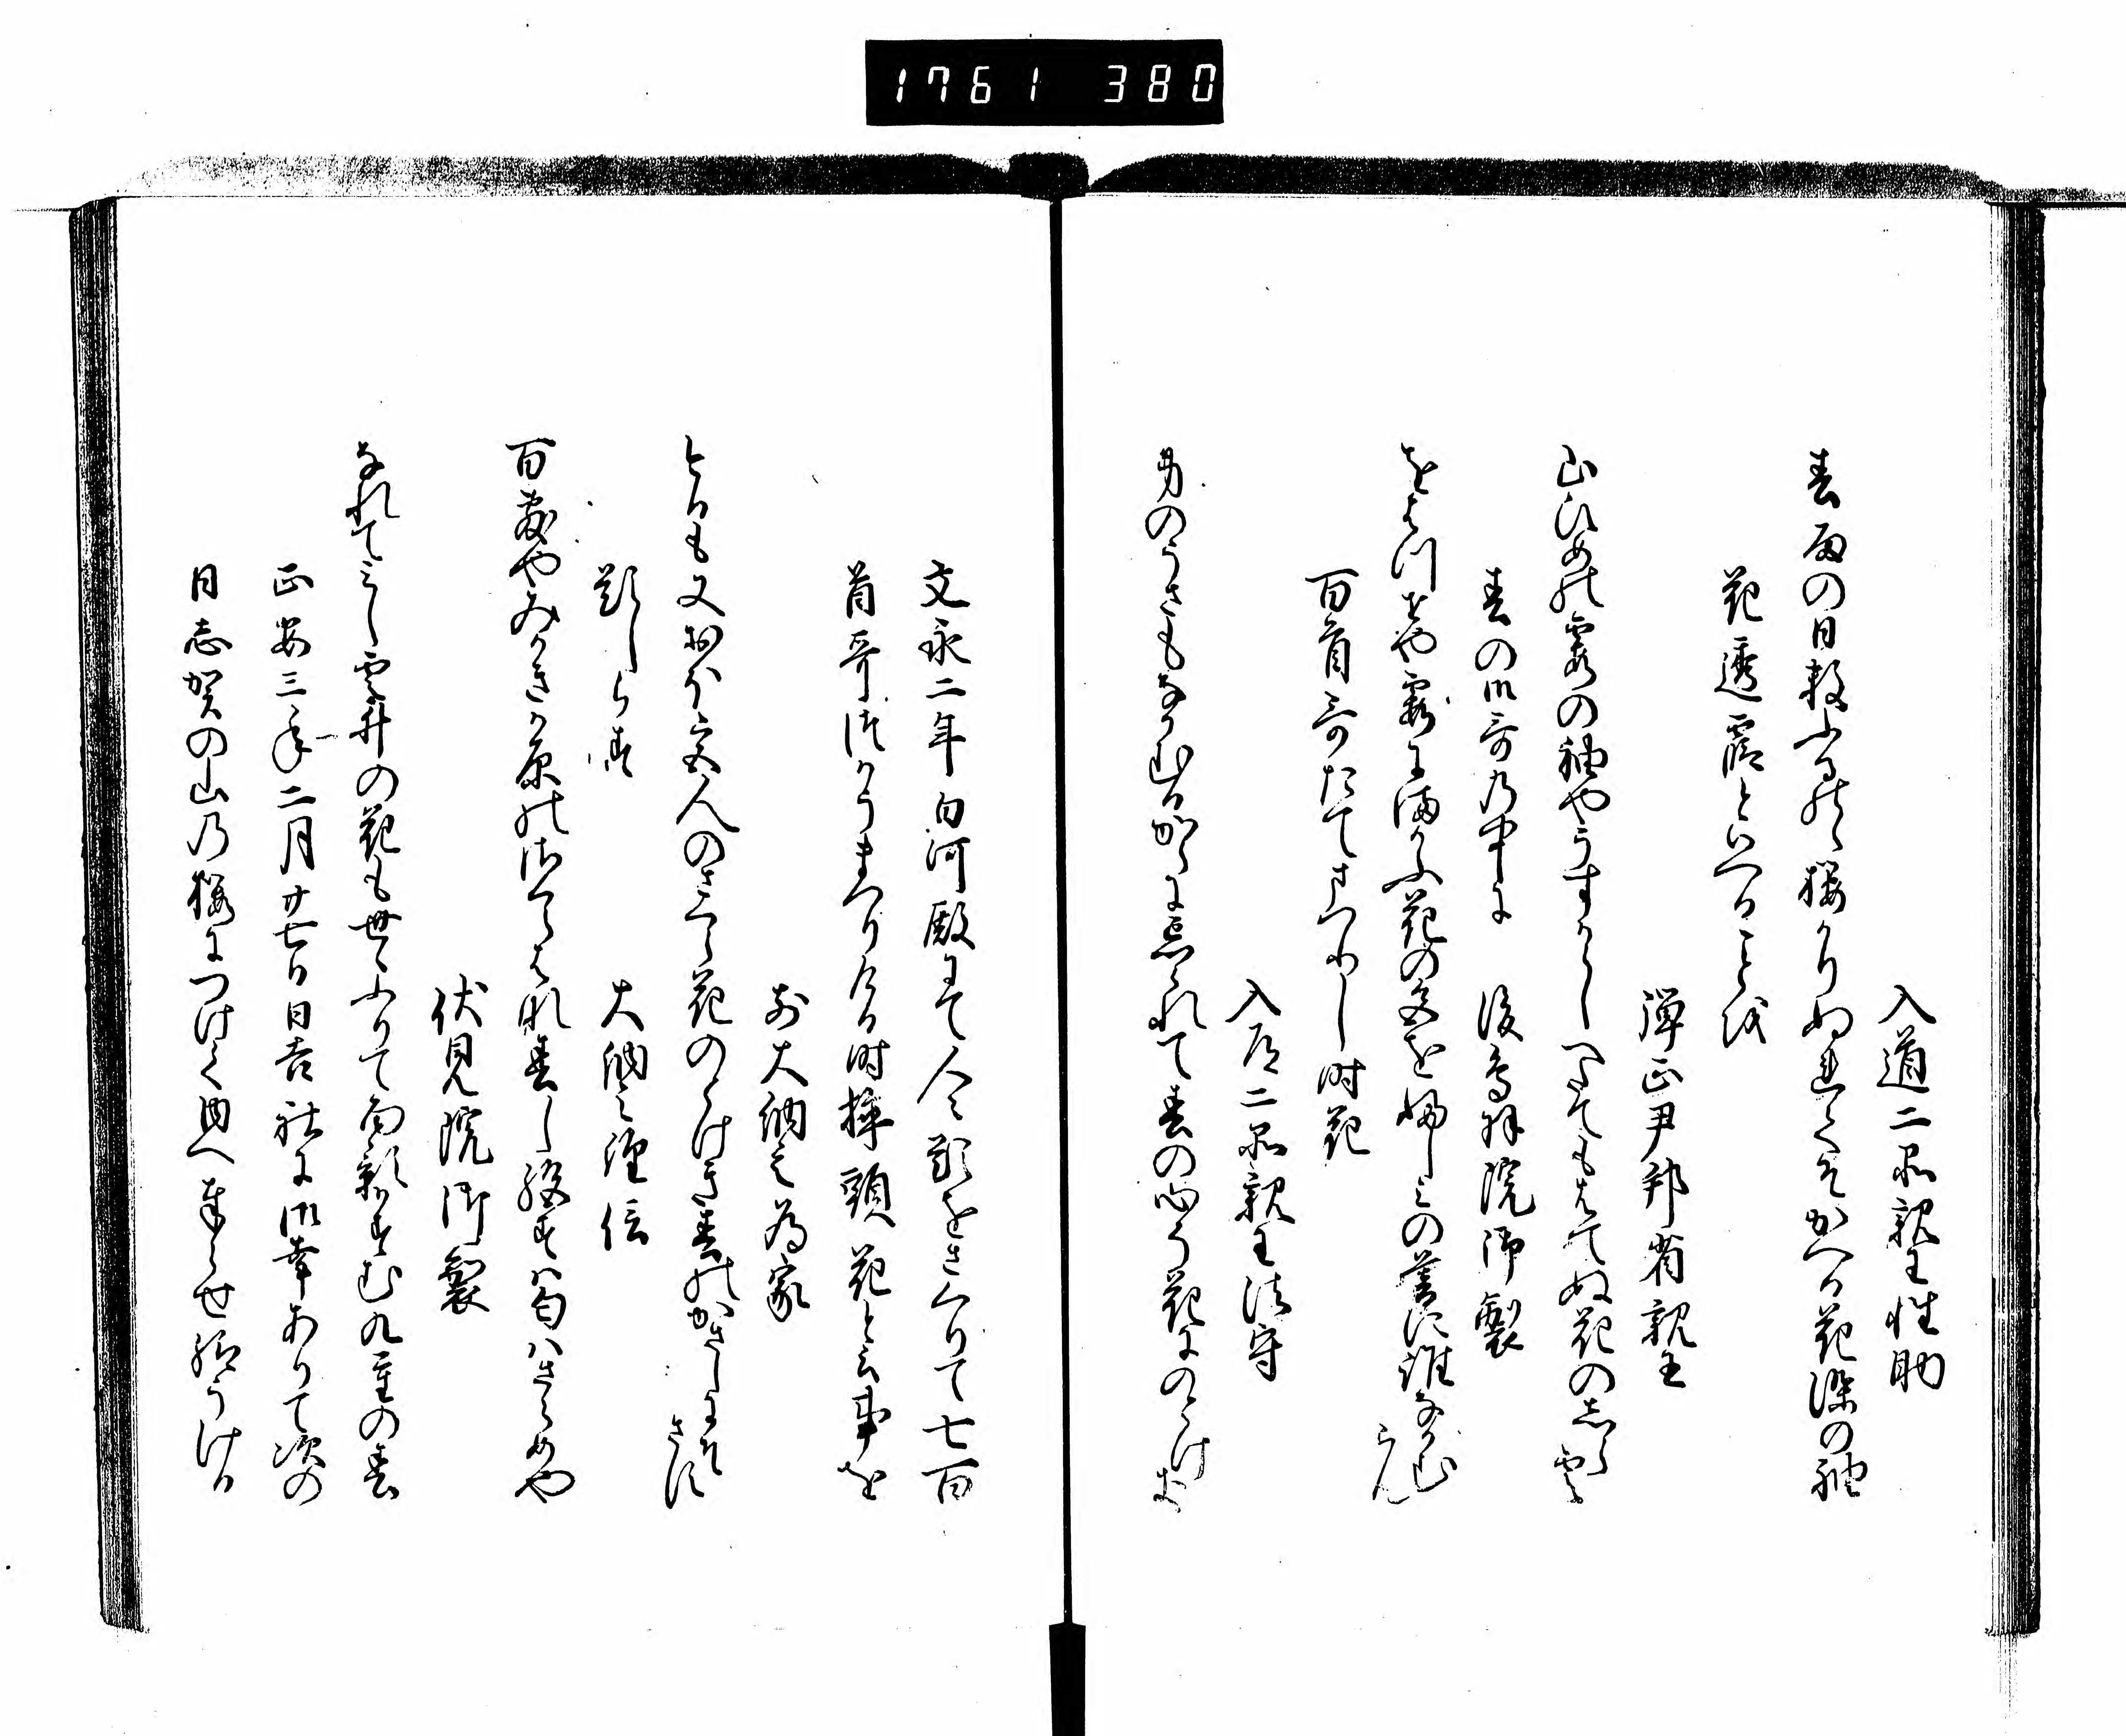 1761 380
入道二品親王性助
春雨の日数ふるらし桜かりぬれてそかへる花染の袖
花透霞といへることを
弾正尹邦省親王
山ひめの霞の袖やうすからしへたてもはてぬ花のしら雲
春の御哥の中に 後鳥羽院御製
をはつせや霞にまかふ花の色をふしみの暮に誰なかむらん
百首哥たてまつりし時花
入道二品親王法守
身のうさもなかむるからに忘られて春の心そ花にのとけき
文永二年白河殿にて人々題をさくりて七百
首哥つかうまつりける時挿頭花と云事を
前大納言為家
とるも又おほ宮人のさくら花のとけき春のかさしにそさす
題しらす 大納言経信
百敷やみかきか原のさくら花春したえすは匂はさらめや
伏見院御製
なれてみし雲井の花も世々ふりて面影かすむ九重の春
正安三年二月廿七日日吉社に御幸ありて次の
日志賀の山の桜につけて内へまいらせ給うける